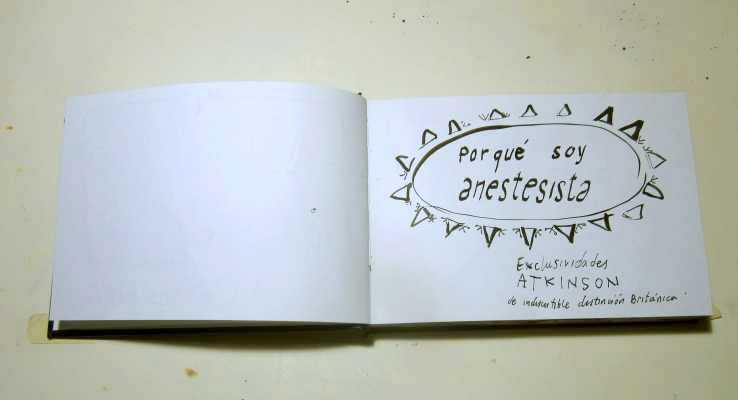 Porqué soy
anestesista
Exclusividades
ATKINSON
de indiscutible distinción Británica